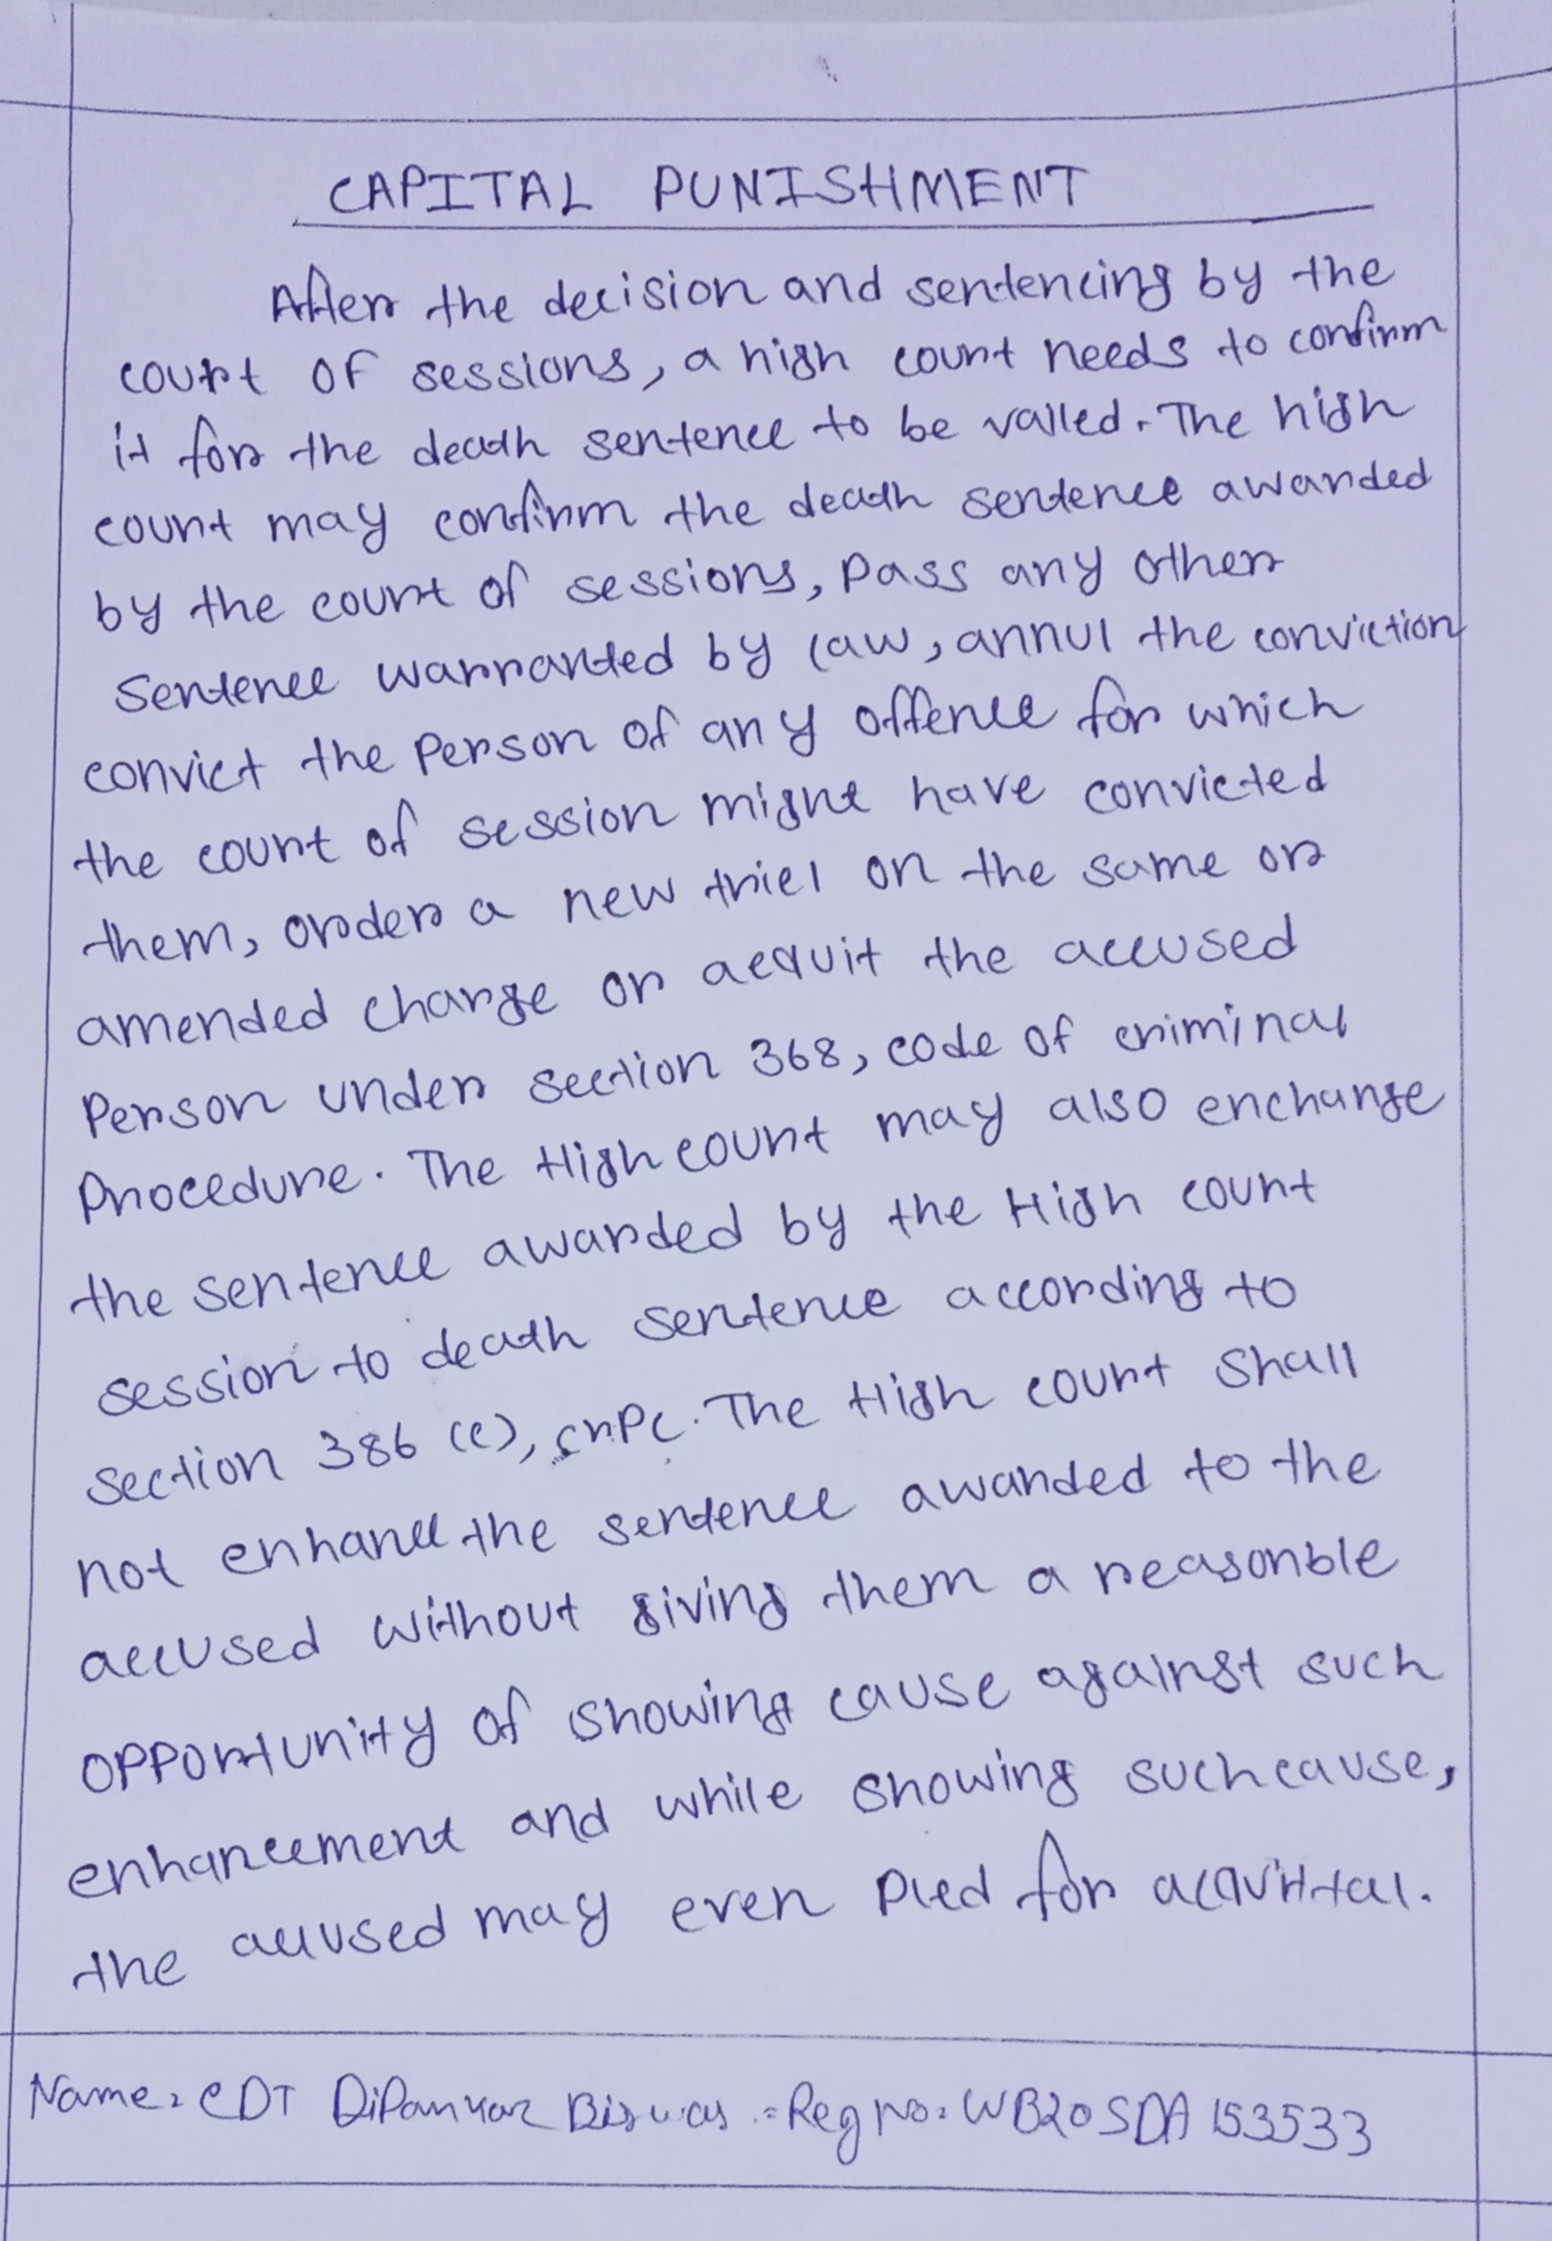 CAPITAL PUNISHMENT
After the decision and sentencing by the
court of sessions, a high court needs to confirm
it for the death sentence to be valled. The high
court may confirm the death sentence awarded
by the court of sessions, pass any other
sentence warranted by law, annul the conviction
convict the person of any offence for which
the court of session might have convicted
them, order a new triel on the same or
amended charge or acquit the accused
person under section 368, code of criminal
procedure. The High court may also enchange
the sentence awarded by the High court
session to death sentence according to
section 386 (c), crPC. The High court shall
not enhance the sentence awarded to the
accused without giving them a reasonble
opportunity of showing cause against such
enhancement and while showing such cause,
the accused may even pled for acquittal.
Name: CDT Dipankar Biswas = Reg no: WB20SDA153533